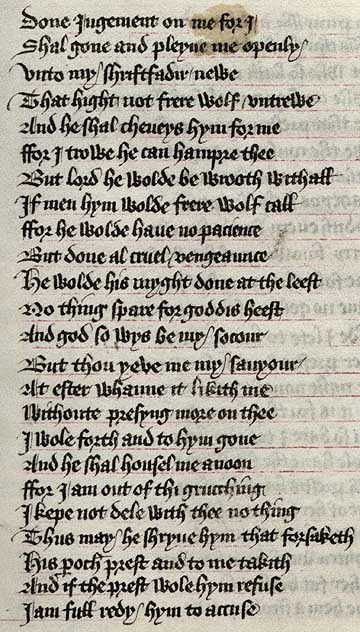 Done Jugement on me for I
Shal gone and pleyne me openly
Vnto my shriftfadir newe
That hight not frere wolf vntrewe
And he shal cheueys hym for me
ffor I trowe he can hampre thee
But lord he wolde be wrooth withall
If men hym wolde frere wolf call
ffor he wolde haue no pacience
But done al cruel vengeaunce
He wolde his myght done at the leest
No thing spare for goddis heest
And god so wys be my socour
But thou yeve me my sauyour
At ester whanne it likith me
Withoute presyng more on thee
I wole forth and to hym gone
And he shal housel me anoon
ffor I am out of thi grucching
I kepe not dele with thee no thing
Thus may he shryue hym that forsaketh
His poch prest and to me takith
And if the prest wole hym refuse
I am full redy hym to accuse